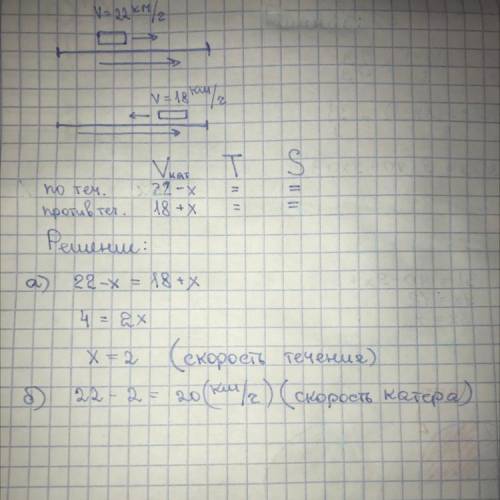 V=22 км/ч
V=18 км/ч
Vкат T S
по теч. 22-x = =
против теч. 18+x = =
Решение:
а) 22-x = 18+x
4 = 2x
x = 2 (скорость течения)
б) 22 - 2 = 20 (км/ч) (скорость катера)